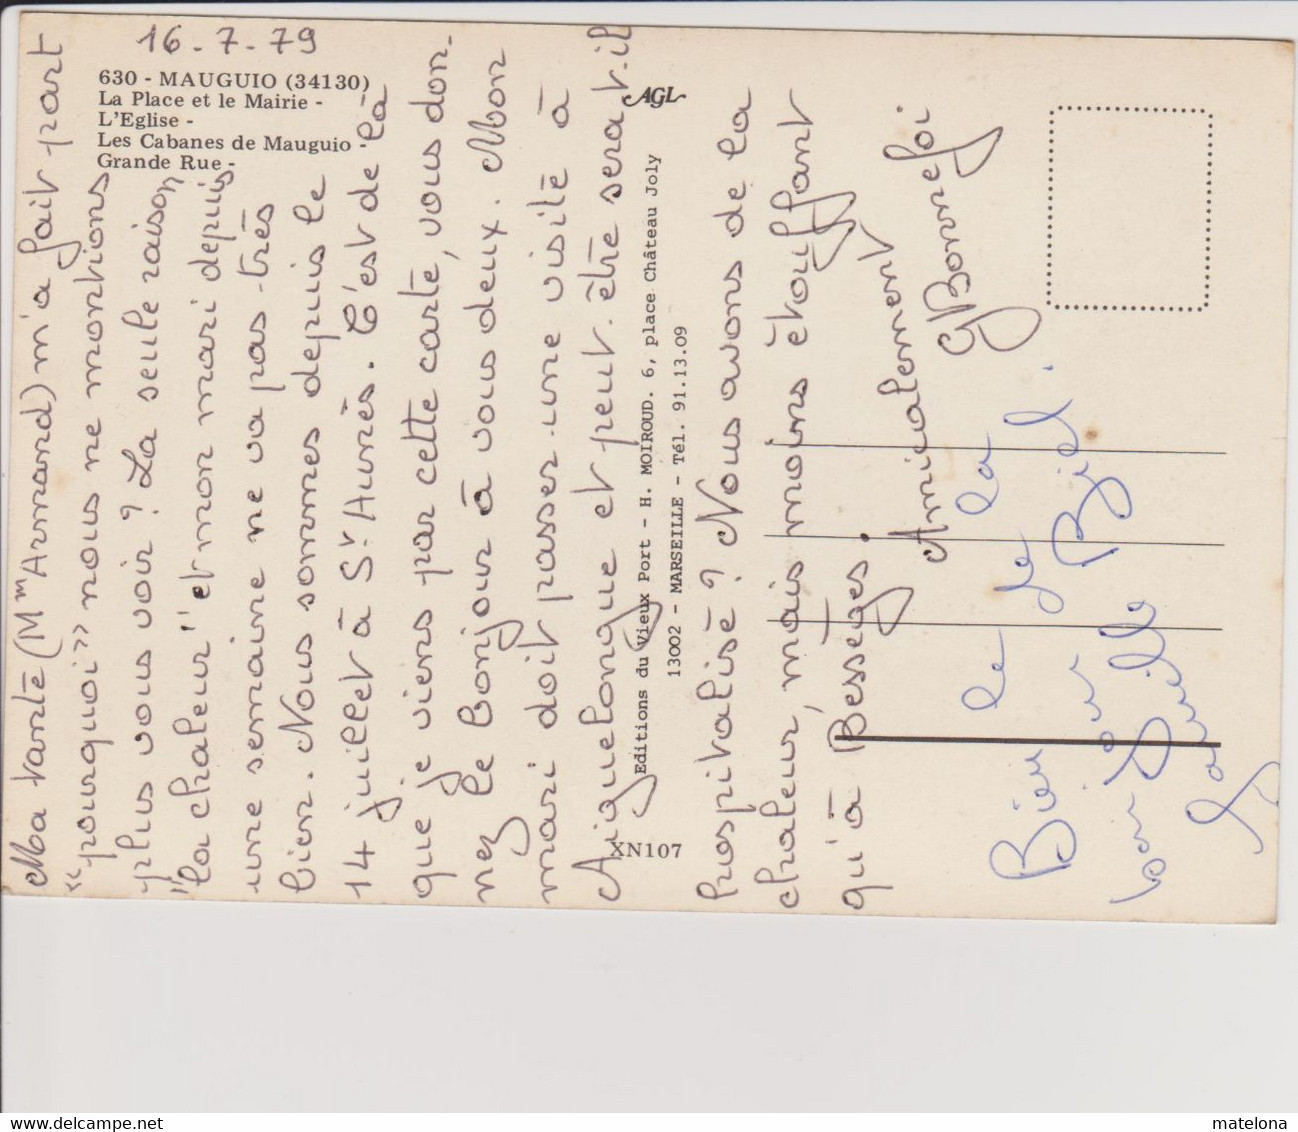 16-7-79
630 - MAUGUIO (34130)
La Place et le Mairie -
L'Eglise -
Les Cabanes de Mauguio -
Grande Rue -
AGL
Ma tante (Mm Armand) m'a fait part
«pourquoi» nous ne montions
plus vous voir ? La seule raison
"la chaleur" et mon mari depuis
une semaine ne va pas très
bien. Nous sommes depuis le
14 juillet à St Aunès. C'est de là
que je viens par cette carte, vous don-
nez le Bonjour à vous deux. Mon
mari doit passer une visite à
Aiguelongue et peut-être sera-t-il
hospitalisé ? Nous avons de la
chaleur, mais moins étouffant
qu'à Bessèges.
Amicalement
GBonnefoi
Editions du Vieux Port - H. MOIROUD. 6, place Château Joly
13002 - MARSEILLE - Tél. 91.13.09
XN107
matelona